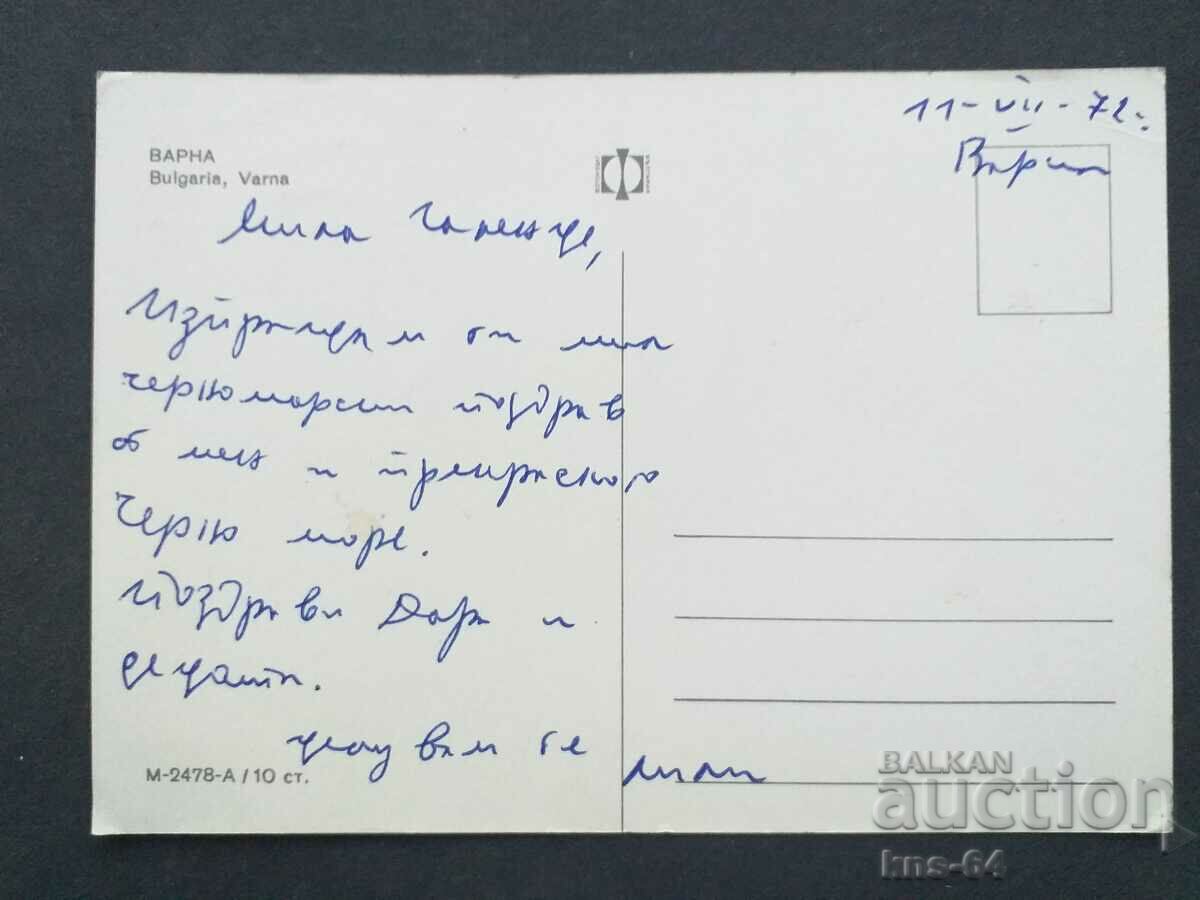 11-VII-72.
Варна
ВАРНА
Bulgaria, Varna
Мила Галенце,
Изпращам ти мил
черноморски поздрав
от мен и прекрасното
Черно море.
Поздрави Дора и
децата.
целувам те
Лили
М-2478-А / 10 ст.
BALKAN
auction
kns-64